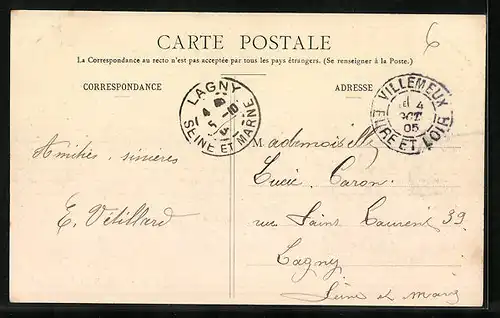 6
CARTE POSTALE
La Correspondance au recto n'est pas acceptée par tous les pays étrangers. (Se renseigner à la Poste.)
CORRESPONDANCE
ADRESSE
LAGNY
SEINE ET MARNE
VILLEMEUX
4
OCT
05
EURE ET LOIR
Amitiés sincères
E. Vétillard
Mademoiselle
Lucie Caron
rue Saint Laurent 39
Lagny
Seine et Marne